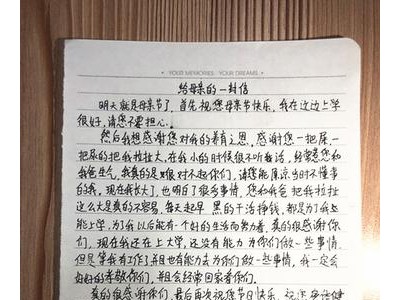 YOUR MEMORIES. YOUR DREAMS.
给母亲的一封信
明天就是母亲节了,首先祝您母亲节快乐,我在这边上学
很好,请您不要担心。
然后我想感谢您对我的养育之恩,感谢您一把屎一
把尿的把我拉扯大,在我小的时候很不听话,经常惹您和
我爸生气,我真的是很对不起你们,请您能原谅当时不懂事
的我。现在我长大了,也明白了很多事情,您和我爸把我拉扯
这么大是真的不容易,每天起早 黑的干活挣钱,都是为了我
能上学,为了我以后能有一个好的生活而努力着,真的很感谢你
们,现在我还在上大学,还没有能力为你们做一些事情,
但是等我有工作了并且也有能力去为你们做一些事情,我一定会
好好的孝敬你们,并且会经常回家看你们。
真的很感谢你们,最后再次祝您节日快乐